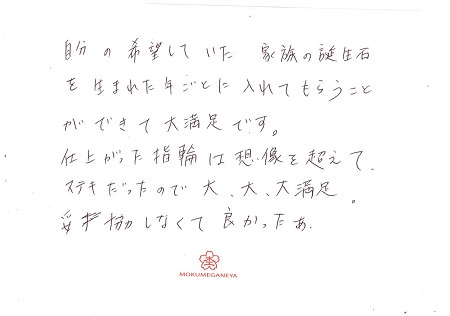 自分の希望していた 家族の誕生石
を生まれた年ごとに入れてもらうこと
ができて大満足です。
仕上がった指輪は想像を超えて、
ステキだったので大、大、大満足。
妥協しなくて良かったぁ.
MOKUMEGANEYA